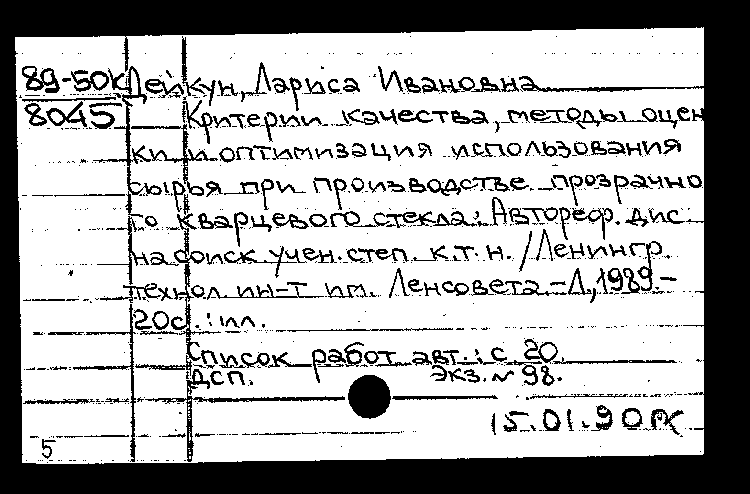 89-50к Дейкун, Лариса Ивановна
8045 Критерии качества, методы оцен
ки и оптимизация использования
сырья при производстве прозрачно
го кварцевого стекла: Автореф. дис.
на соиск учен. степ. к.т.н. /Ленингр.
технол. ин-т им. Ленсовета.-Л,1989.-
20с.: ил.
Список работ авт.: с. 20.
ДСП. Экз. № 98.
15.01.90
5